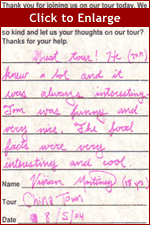 Thank you for joining us on our tour today. We
Click to Enlarge
so kind and let us your thoughts on our tour?
Thanks for your help.
Great tour! He (Tom)
knew a lot and it
was always interesting.
Tom was funny and
very nice. The food
facts were very
interesting and cool.
Name Vivian Martinez
Tour China Town
Date 8/5/04